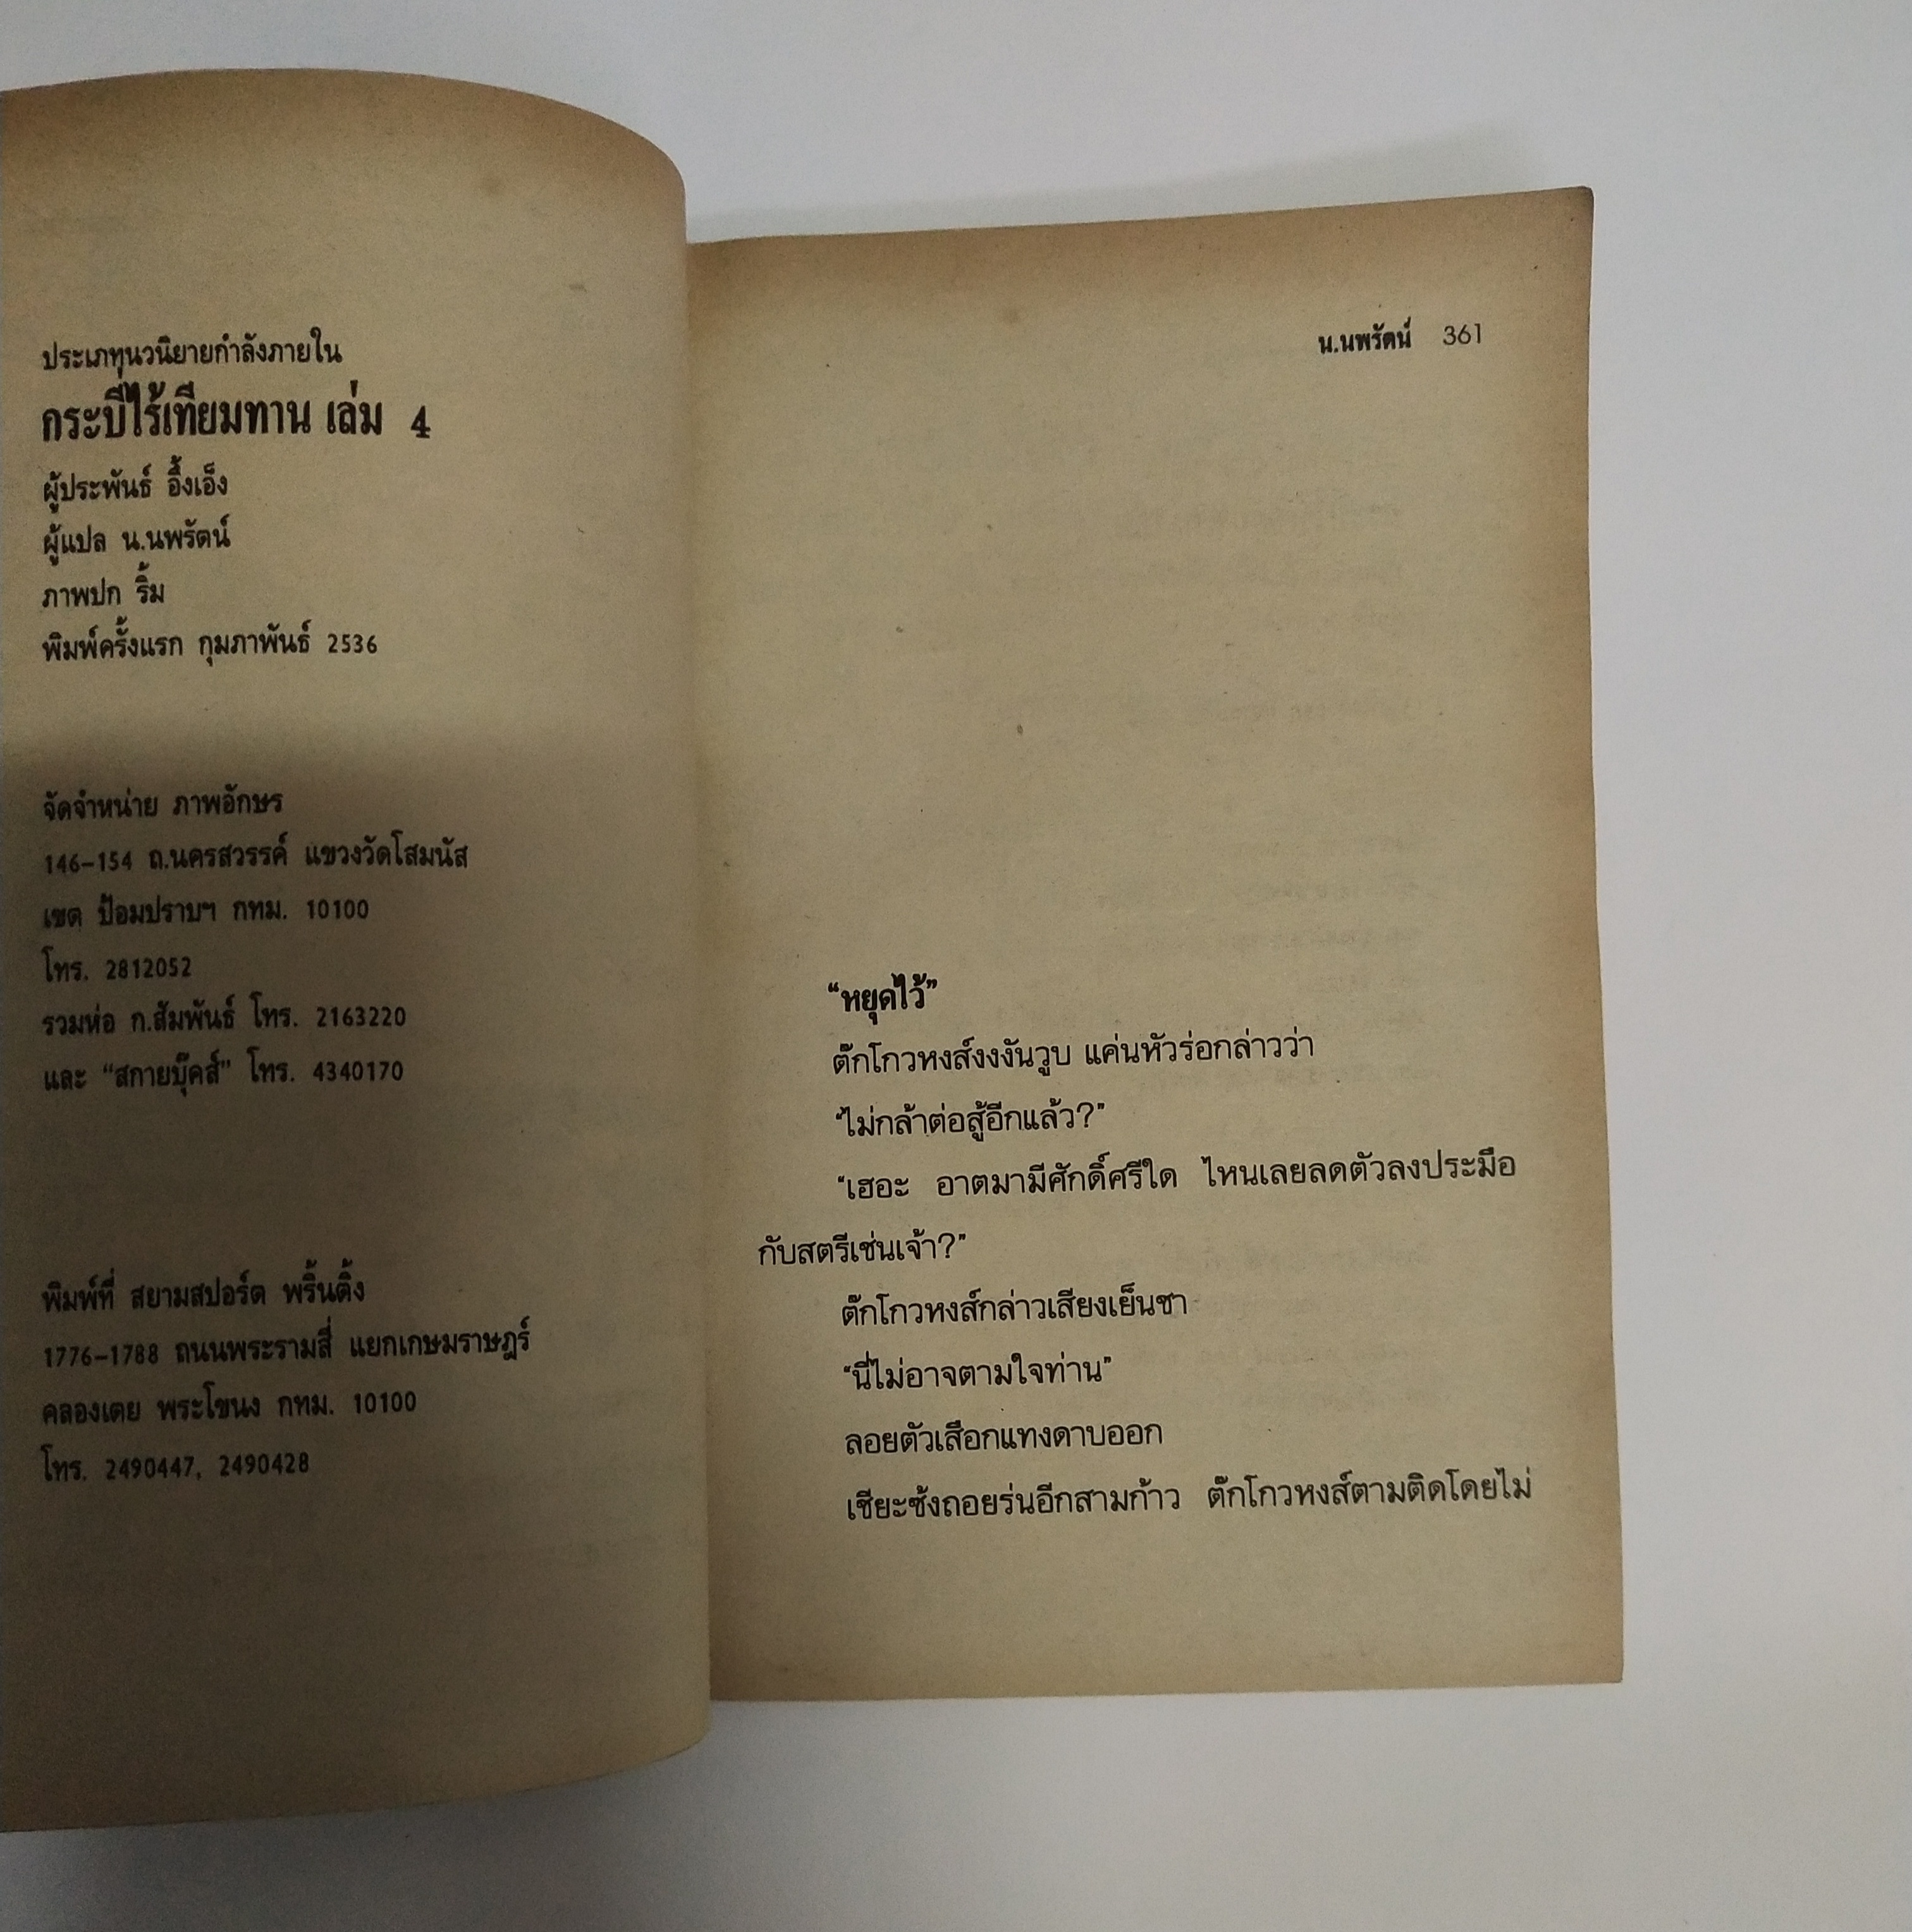 ประเภทนวนิยายกำลังภายใน
กระบี่ไร้เทียมทาน เล่ม 4
ผู้ประพันธ์ อึ้งเอ็ง
ผู้แปล น.นพรัตน์
ภาพปก ริ้ม
พิมพ์ครั้งแรก กุมภาพันธ์ 2536
จัดจำหน่าย ภาพอักษร
146-154 ถ.นครสวรรค์ แขวงวัดโสมนัส
เขต ป้อมปราบฯ กทม. 10100
โทร. 2812052
รวมห่อ ก.สัมพันธ์ โทร. 2163220
และ "สกายบุ๊คส์" โทร. 4340170
พิมพ์ที่ สยามสปอร์ต พริ้นติ้ง
1776-1788 ถนนพระรามสี่ แยกเกษมราษฎร์
คลองเตย พระโขนง กทม. 10100
โทร. 2490447, 2490428
น.นพรัตน์ 361
"หยุดไว้"
ต๊กโกวหงส์งงงันวูบ แค่นหัวร่อกล่าวว่า
"ไม่กล้าต่อสู้อีกแล้ว?"
"เฮอะ อาตมามีศักดิ์ศรีใด ไหนเลยลดตัวลงประมือ
กับสตรีเช่นเจ้า?"
ต๊กโกวหงส์กล่าวเสียงเย็นชา
"นี่ไม่อาจตามใจท่าน"
ลอยตัวเสือกแทงดาบออก
เชียะซ้งถอยร่นอีกสามก้าว ต๊กโกวหงส์ตามติดโดยไม่